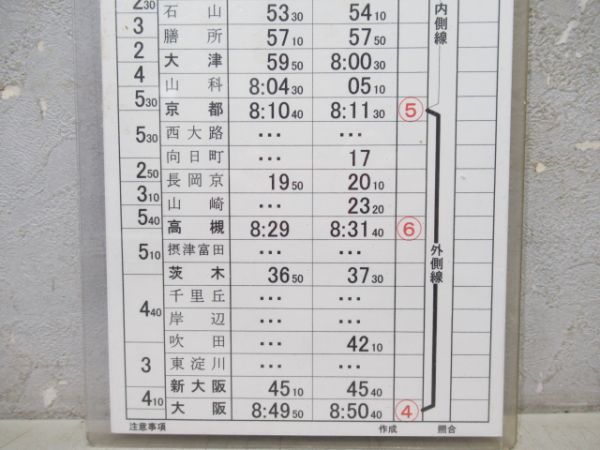 2 30 石山 53 30 54 10
3 膳所 57 10 57 50
2 大津 59 50 8:00 30
4 山科 8:04 30 05 10
5 30 京都 8:10 40 8:11 30 ⑤
西大路 … …
5 30 向日町 … 17
2 50 長岡京 19 50 20 10
3 10 山崎 … 23 20
5 40 高槻 8:29 8:31 40 ⑥
5 10 摂津富田 … …
茨木 36 50 37 30
千里丘 … …
4 40 岸辺 … …
吹田 … 42 10
3 東淀川 … …
新大阪 45 10 45 40
4 10 大阪 8:49 50 8:50 40 ④
内側線
外側線
注意事項 作成 照合